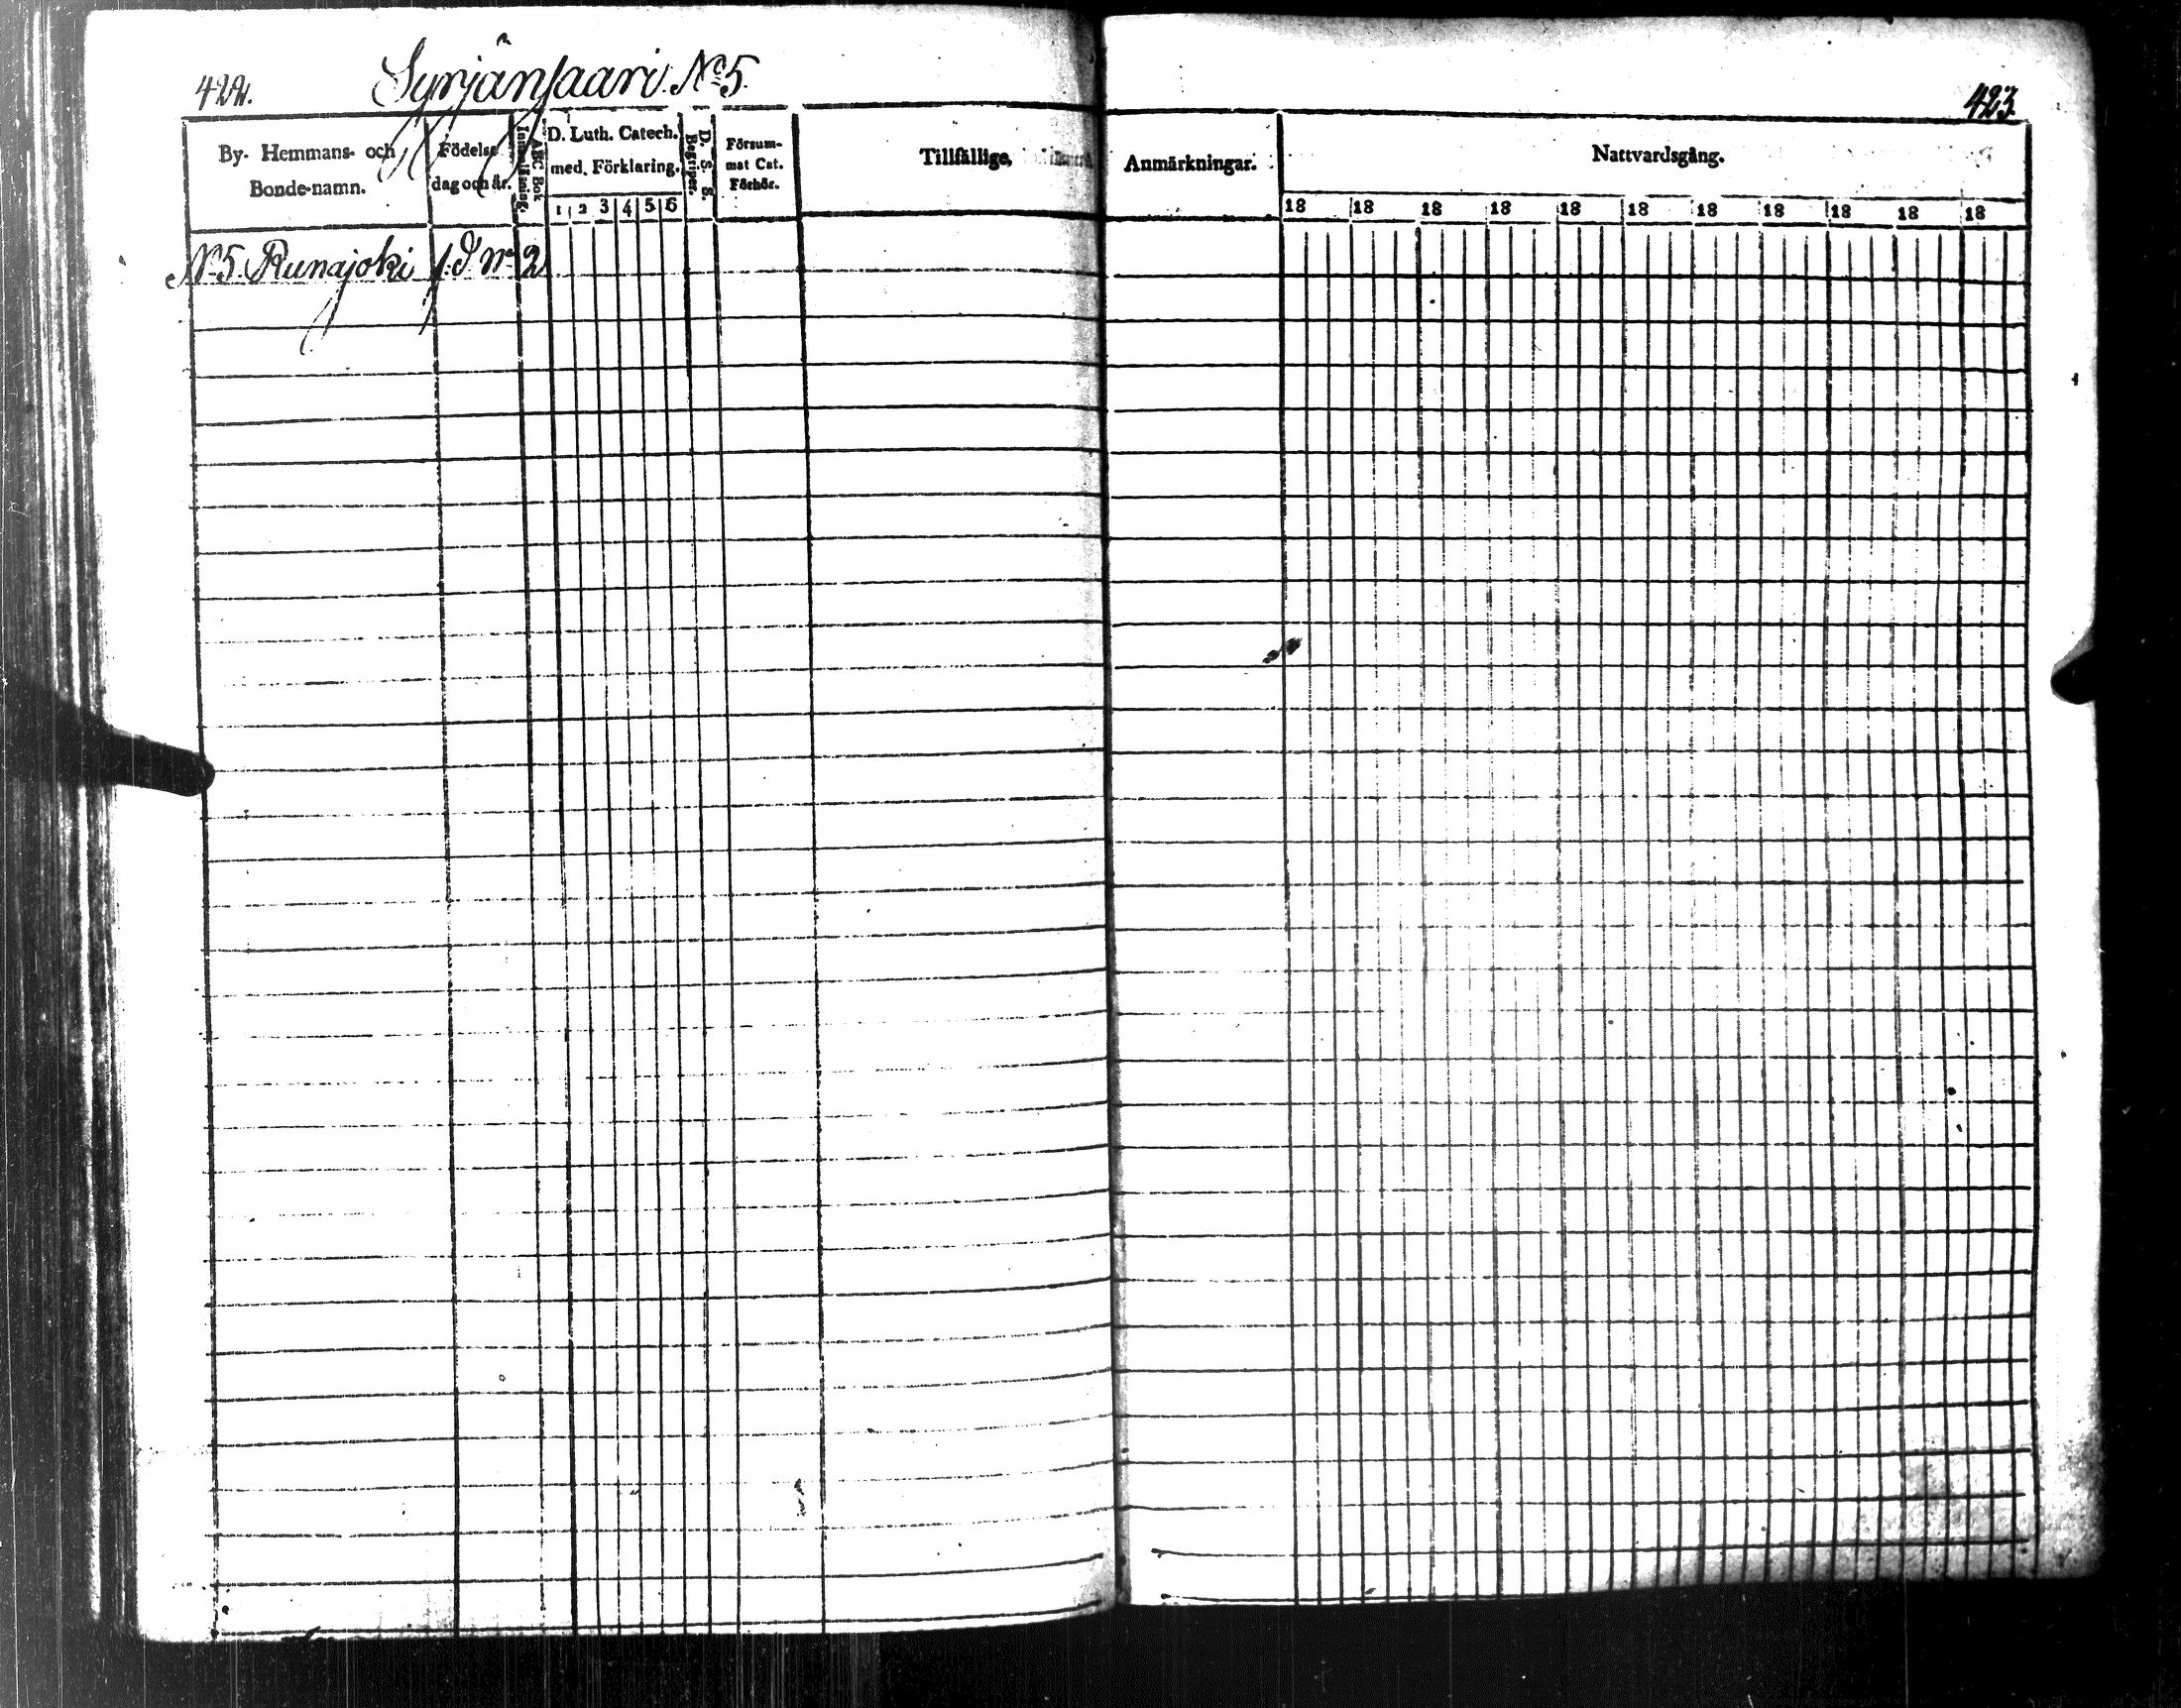 422.
Syrjänsaari. No 5.
423
By- Hemmans- och
Bonde-namn.
Födelse
dag och år.
Innanläsning.
ABC Bok
D. Luth. Catech.
med. Förklaring.
1 2 3 4 5 6
D. S. S.
Begriper.
Försum-
mat Cat.
Förhör.
Tillfällige,
Anmärkningar.
Nattvardsgång.
18 18 18 18 18 18 18 18 18 18 18
No 5. Runajoki 2